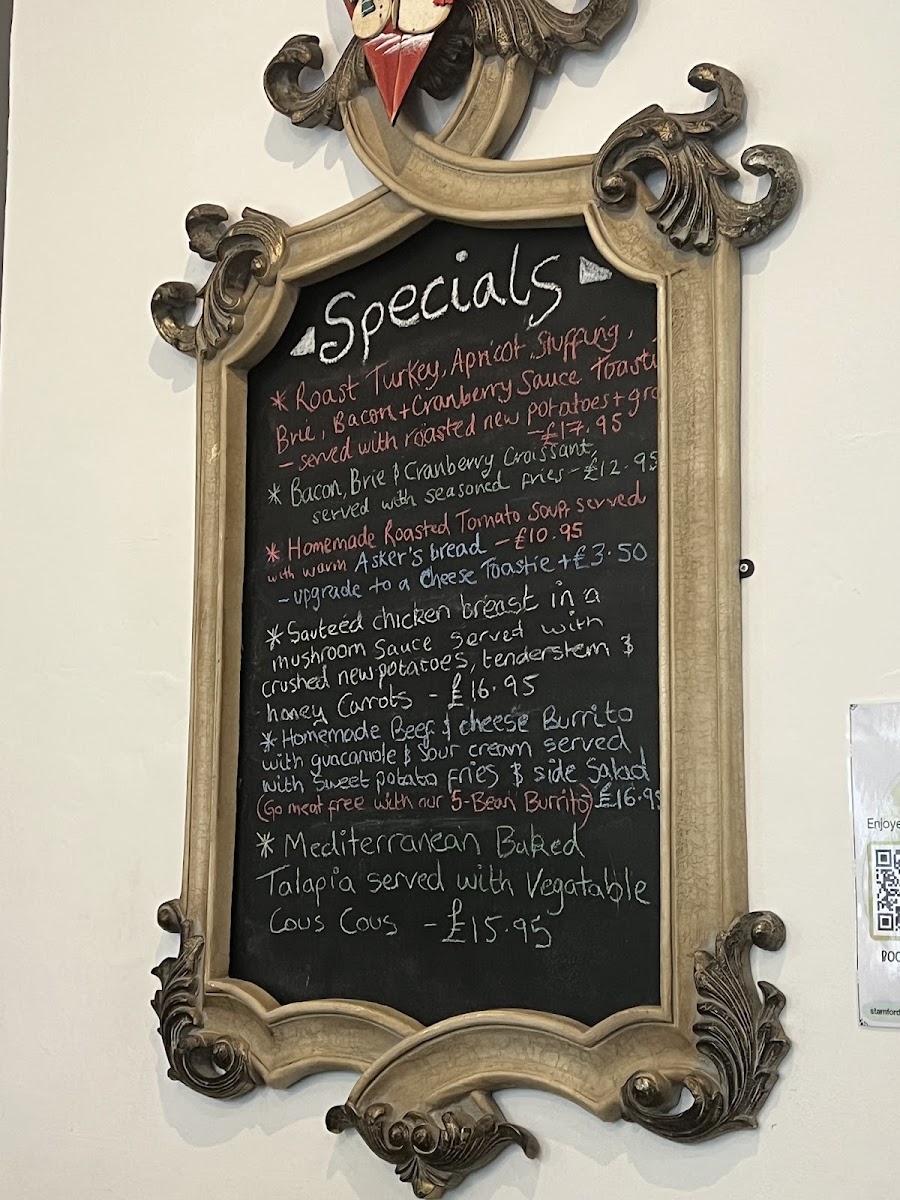 Specials
* Roast Turkey, Apricot, Stuffing,
Brie, Bacon + Cranberry Sauce Toasti
- served with roasted new potatoes + gra
- £17.95
* Bacon, Brie & Cranberry Croissant,
served with seasoned fries - £12.95
* Homemade Roasted Tomato Soup, served
with warm Asker's bread - £10.95
- upgrade to a Cheese Toastie + £3.50
* Sauteéd chicken breast in a
mushroom sauce served with
crushed new potatoes, tenderstem &
honey Carrots - £16.95
* Homemade Beef & cheese Burrito
with guacamole & Sour cream served
with Sweet potato fries & side Salad
(Go meat free with our 5-Bean Burrito) £16.95
* Mediterranean Baked
Talapia served with Vegatable
Cous Cous - £15.95
Enjoye
BOO
stamford